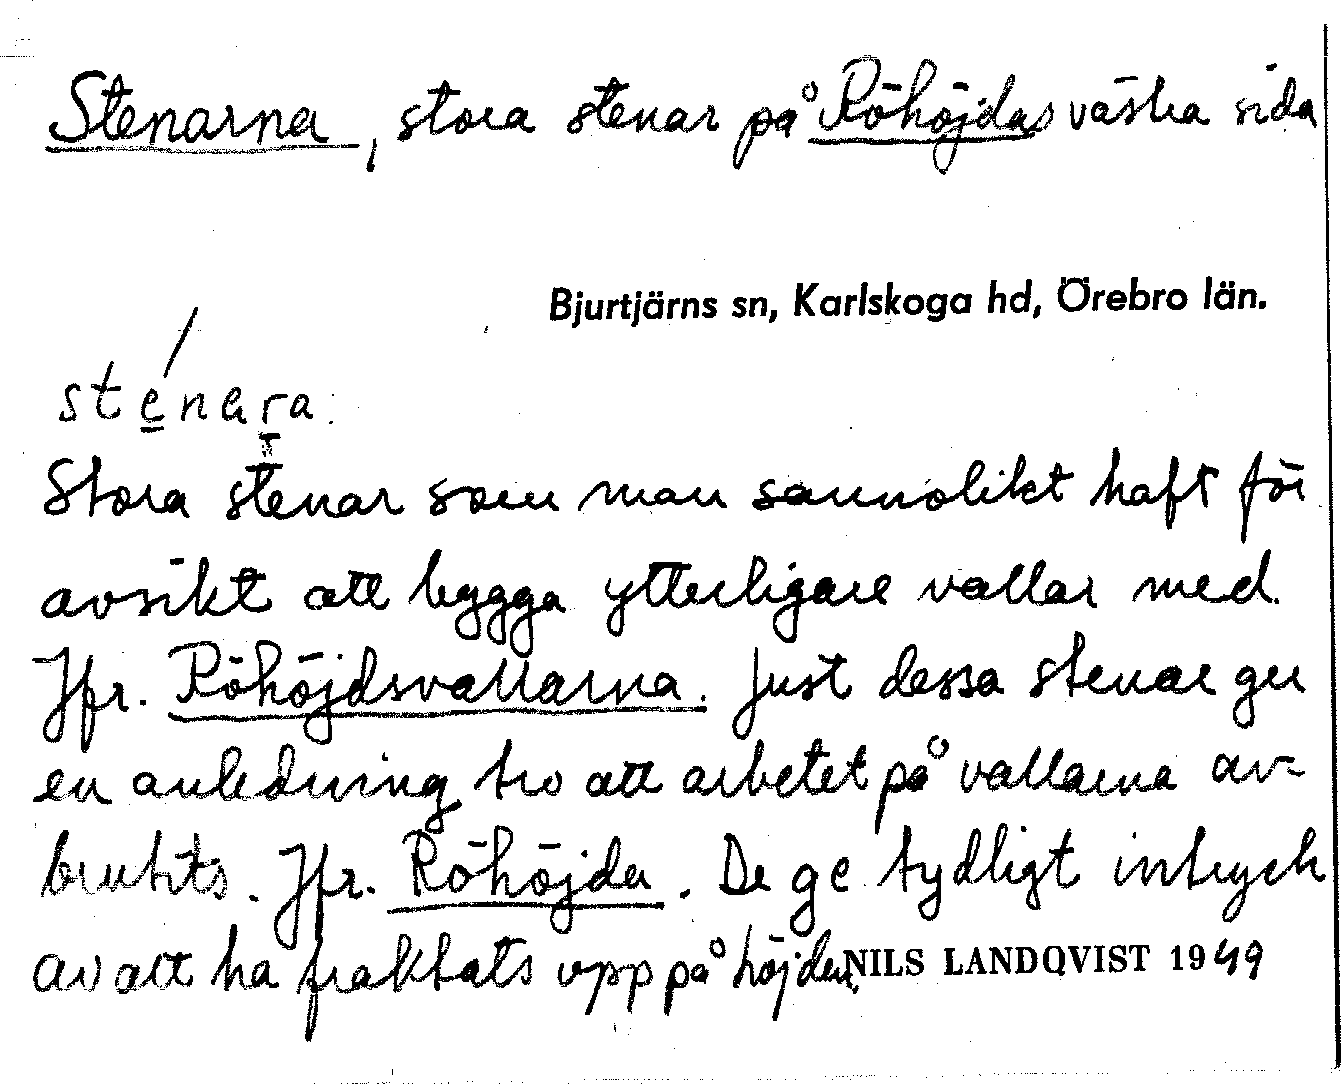 Stenarna, stora stenar på Röhöjdas västra sida
Bjurtjärns sn, Karlskoga hd, Örebro län.
sténara.
Stora stenar som man sannolikt haft för
avsikt att bygga ytterligare vallar med.
Jfr. Röhöjdsvallarna. Just dessa stenar ger
en anledning tro att arbetet på vallarna av-
brutits. Jfr. Röhöjda. De ge tydligt intryck
av att ha fraktats upp på höjden.
NILS LANDQVIST 1949